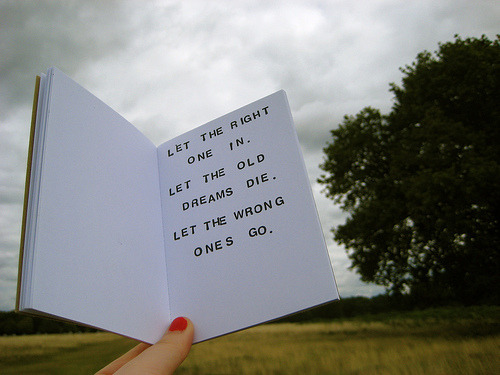 LET THE RIGHT
ONE IN.
LET THE OLD
DREAMS DIE.
LET THE WRONG
ONES GO.